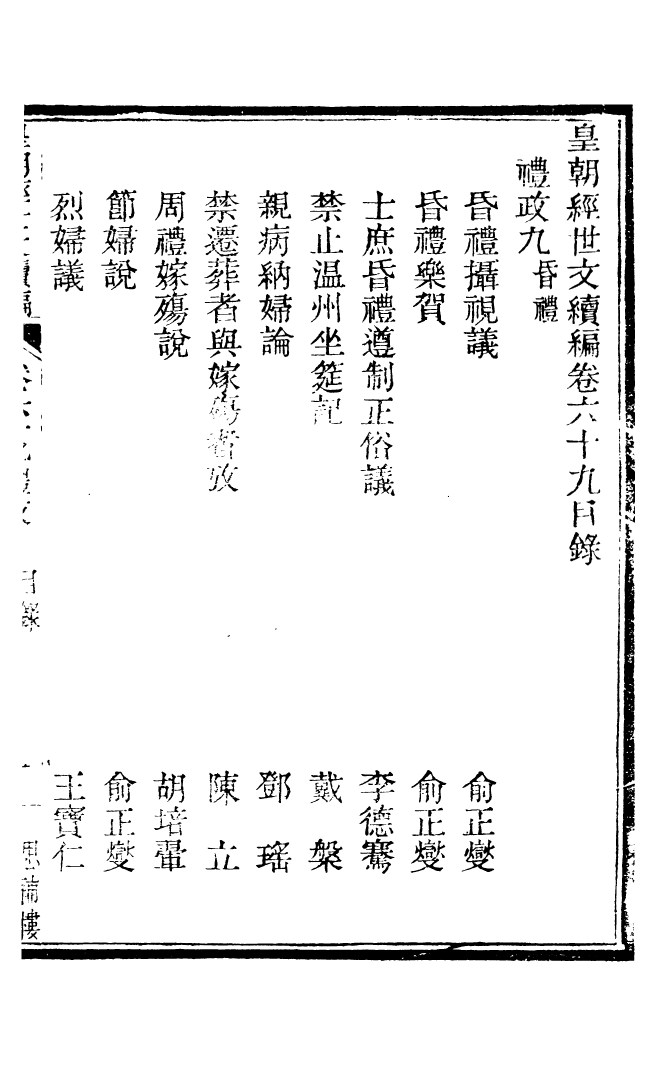 皇朝經世文續編卷六十九目錄
禮政九昏禮
昏禮攝視議 俞正燮
昏禮樂賀 俞正燮
士庶昏禮遵制正俗議 李德騫
禁止温州坐筵記 戴槃
親病納婦論 鄧瑤
禁遷葬者與嫁殤者攷 陳立
周禮嫁殤說 胡培翬
節婦說 俞正燮
烈婦議 王寶仁
目錄